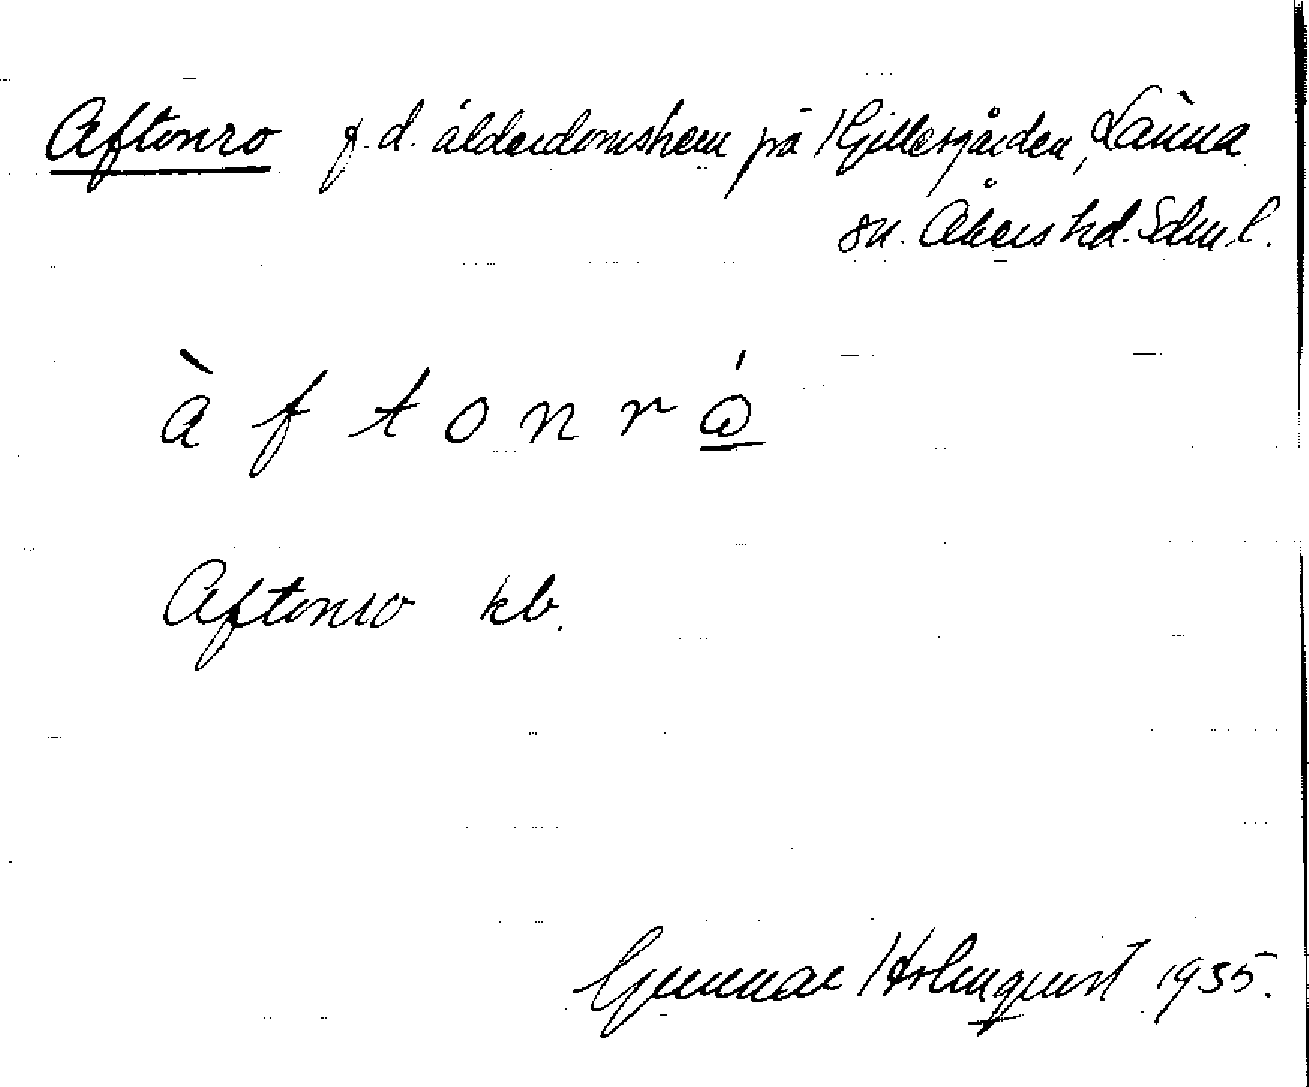 Aftonro f.d. ålderdomshem på Hjillesgården, Länna
sn. Åkers hd. Sdml.
à f t o n r ó
Aftonro kb.
Gunnar Holmquist 1935.